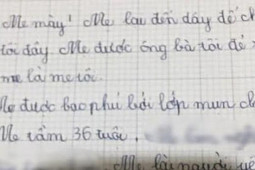 Mẹ mày! Mẹ lau đến dây để ch
tôi đây. Mẹ được ông bà tôi để
mẹ là mẹ tôi
Mẹ được bao phủ bởi lớp mun ch
Mẹ tầm 36 tuổi,
Mẹ là người yê